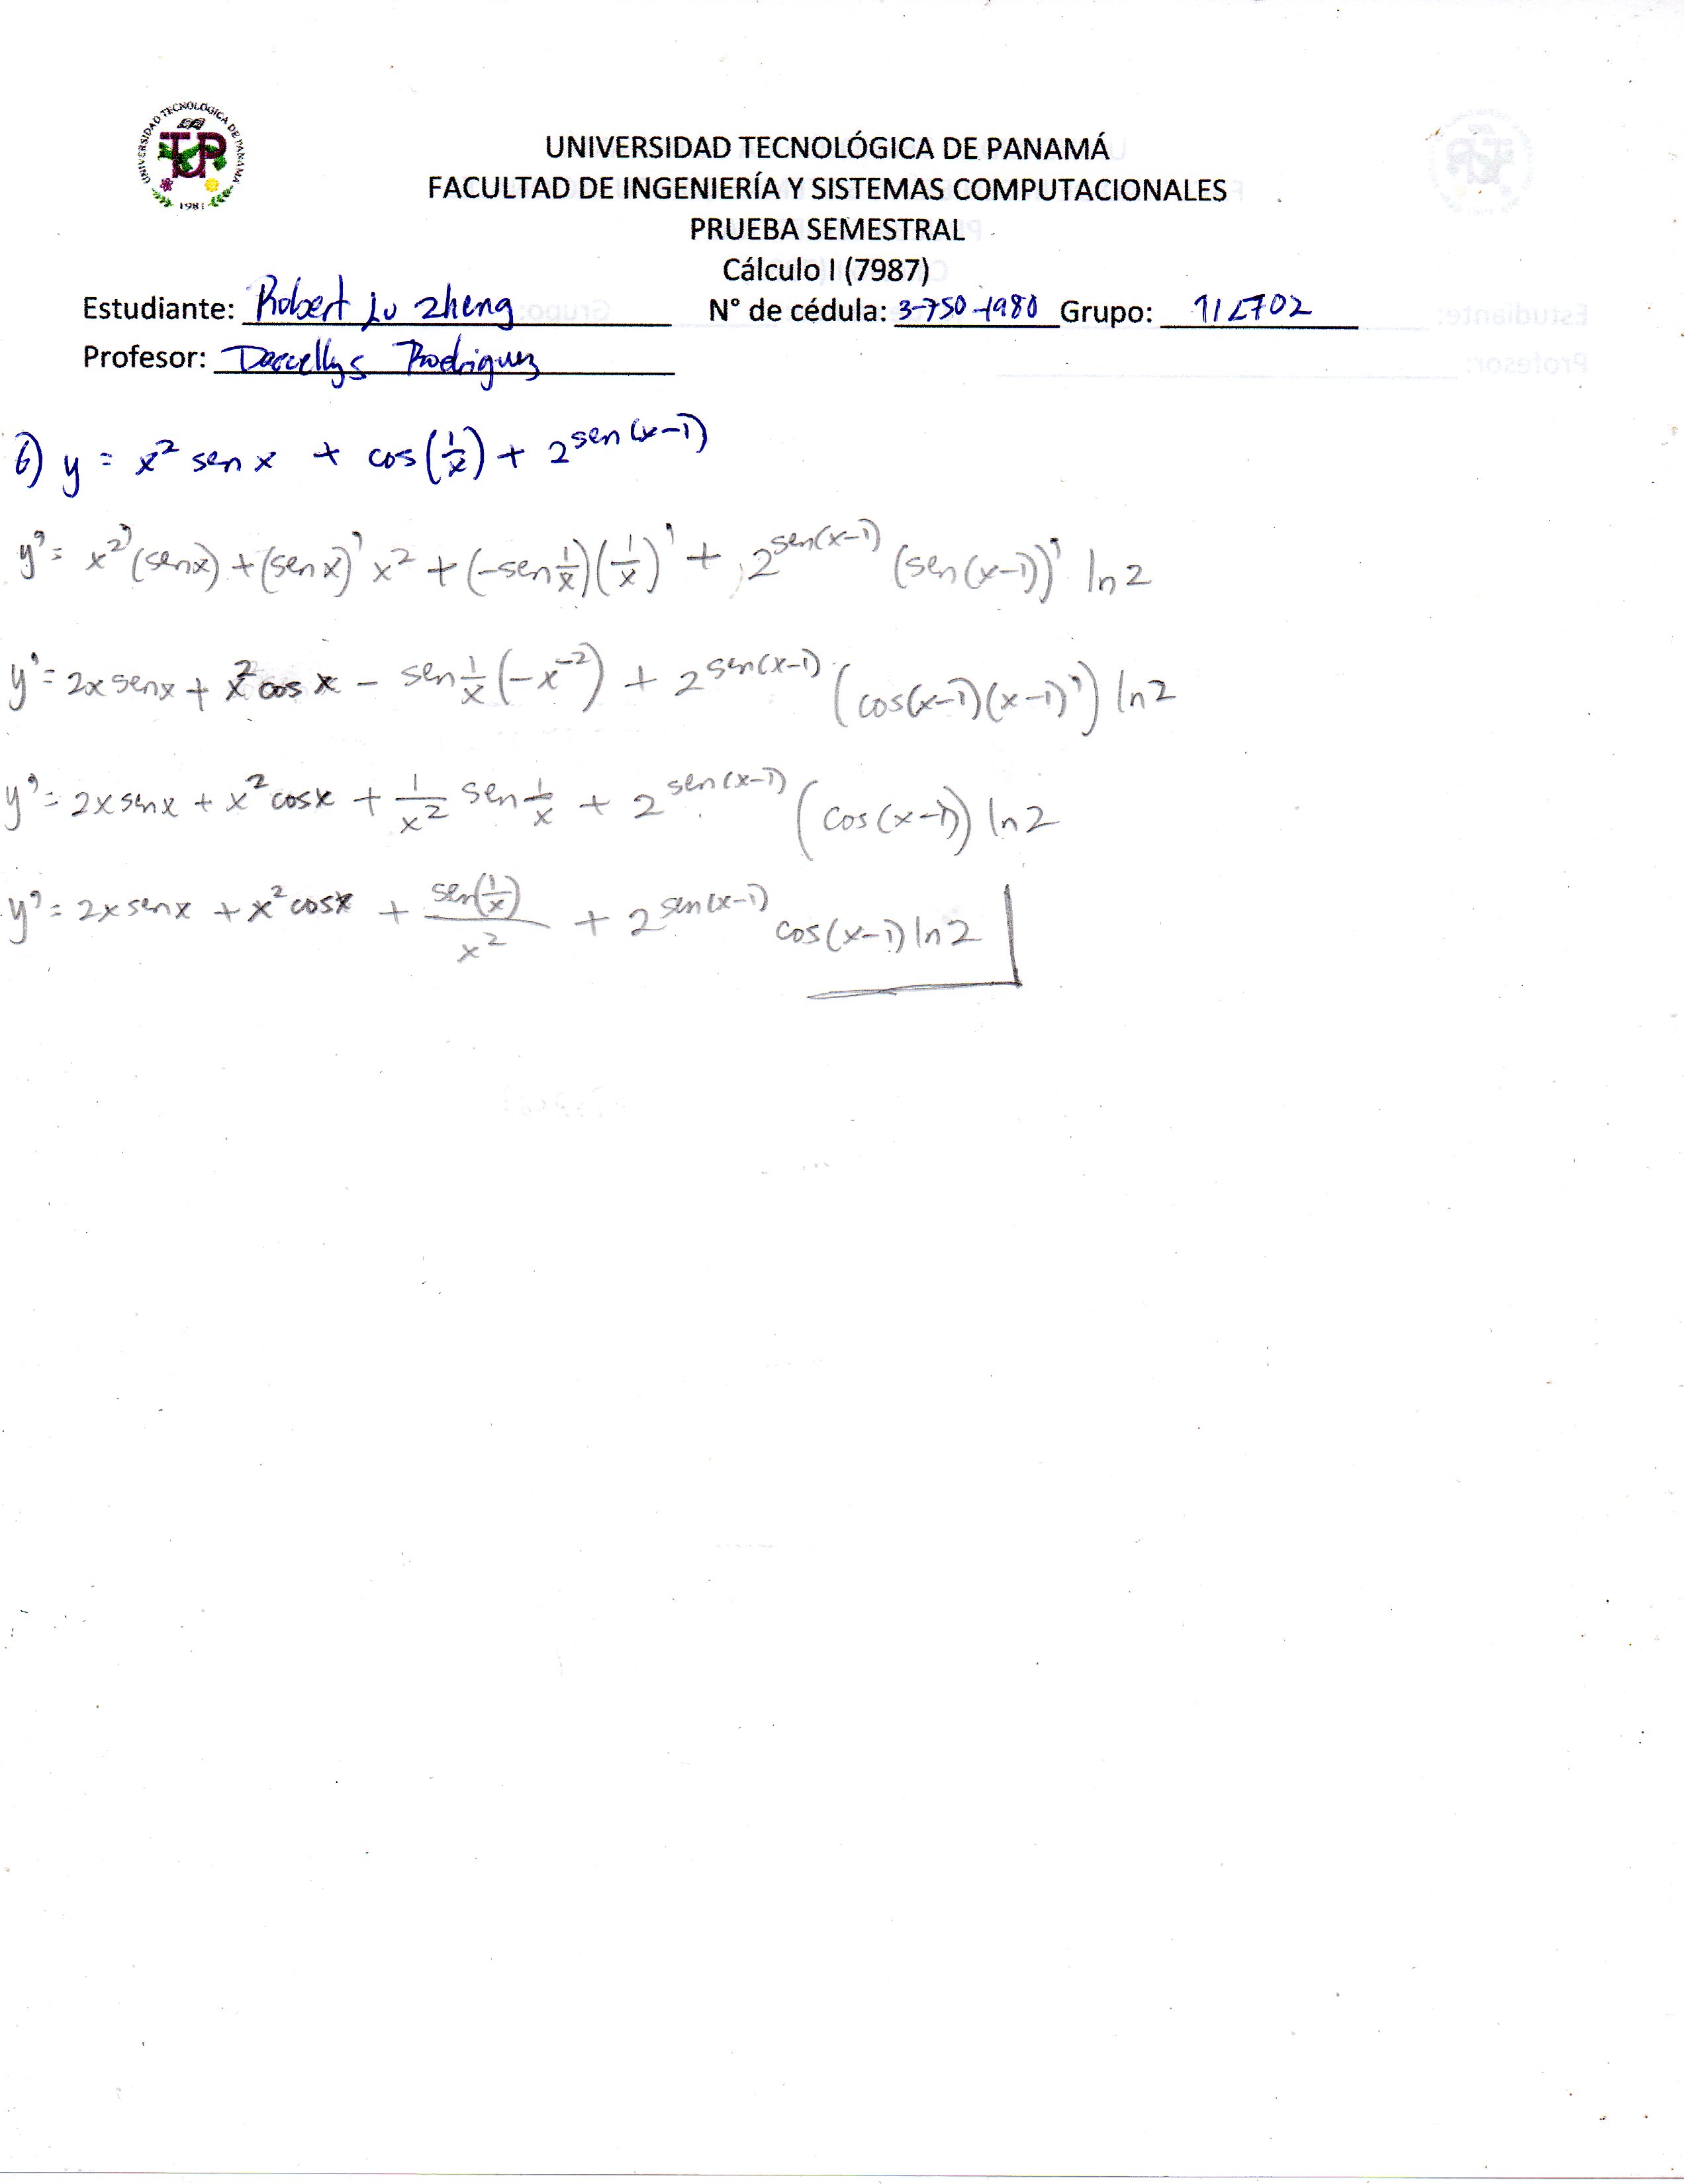 UNIVERSIDAD TECNOLÓGICA DE PANAMÁ
1981
UNIVERSIDAD TECNOLÓGICA DE PANAMÁ
FACULTAD DE INGENIERÍA Y SISTEMAS COMPUTACIONALES
PRUEBA SEMESTRAL
Cálculo I (7987)
Estudiante: Robert Lu Zheng N° de cédula: 3-750-1980 Grupo: 1IL702
Profesor: Rodriguez
6) y = x² sen x + cos(1/x) + 2^sen(x-1)
y' = x²'(senx) + (sen x)' x² + (-sen 1/x)(1/x)' + 2^sen(x-1) (sen(x-1))' ln2
y' = 2x senx + x² cos x - sen 1/x (-x^-2) + 2^sen(x-1) (cos(x-1)(x-1)') ln2
y' = 2x senx + x² cosx + 1/x² sen 1/x + 2^sen(x-1) (cos(x-1)) ln2
y' = 2x senx + x² cosx + sen(1/x)/x² + 2^sen(x-1) cos(x-1) ln2